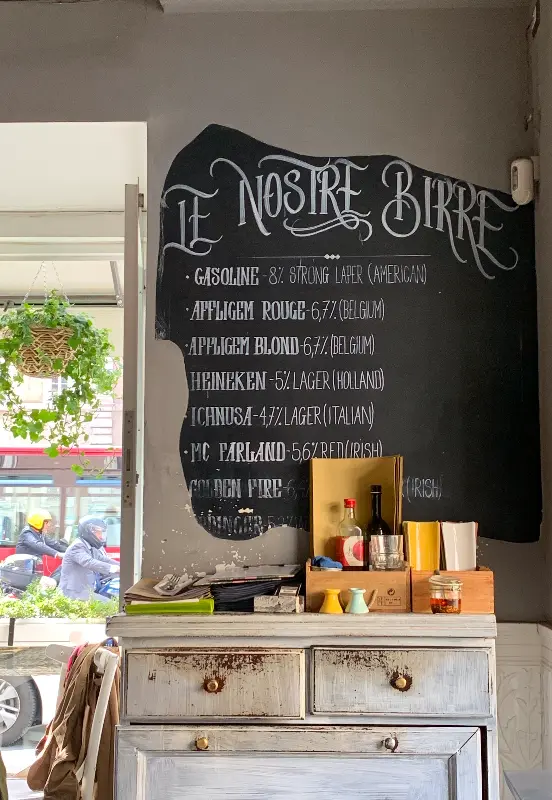 LE NOSTRE BIRRE
• GASOLINE - 8% STRONG LAPER (AMERICAN)
• AFFLIGEM ROUGE - 6,7% (BELGIUM)
• AFFLIGEM BLOND - 6,7% (BELGIUM)
• HEINEKEN - 5% LAGER (HOLLAND)
• ICHNUSA - 4,7% LAGER (ITALIAN)
• MC FARLAND - 5,6% RED (IRISH)
GOLDEN FIRE - (IRISH)